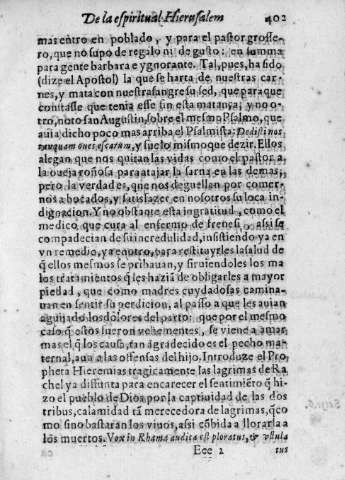 De la espiritual Hierusalem 402
mas entro en poblado, y para el pastor grosse-
ro, que no supo de regalo ni de gusto: en summa
para gente barbara e ygnorante. Tal, pues, ha sido
(dize el Apostol) la que se harta de nuestras car-
nes, y mata con nuestra sangre su sed, que para que
constasse que tenia esse fin esta matança; y no o-
tro, noto san Augustin, sobre el mesmo Psalmo, que
auia dicho poco mas arriba el Psalmista: Dedisti nos
tanquam oues escarum, y suelo mismo que dezir. Ellos
alegan que nos quitan las vidas como el pastor a
la oueja roñosa para atajar la sarna en las demas,
pero la verdad es, que nos deguellan por comer-
nos a bocados, y satisfazer en nosotros su loca in-
dignacion. Y no obstante esta ingratitud, como el
medico que cura al enfermo de frenesi, assi se
compadecian de su incredulidad, insistiendo ya en
vn remedio, ya en otro, para restituyrles la salud de
q̃ ellos mesmos se pribauan, y siruiendoles los ma
los tratamiẽtos q̃ les haziã de obligarles a mayor
piedad, que como madres cuydadosas camina-
uan en sentir su perdicion, al passo a que les auian
aguijado los dolores del parto: que por el mesmo
caso q̃ estos fueron vehementes, se viene a amar
mas el q̃ los causa, tan agradecido es el pecho ma-
ternal, aun a las offensas del hijo. Introduze el Pro
pheta Hieremias tragicamente las lagrimas de Ra
chel ya diffunta para encarecer el sentimiẽto q̃ hi-
zo el pueblo de Dios por la captiuidad de las dos
tribus, calamidad tã merecedora de lagrimas, q̃co
mo sino bastaran los viuos, assi cõbida a llorarla a
los muertos. Vox in Rhama audita est ploratus, & vlula
Eee 2 tus